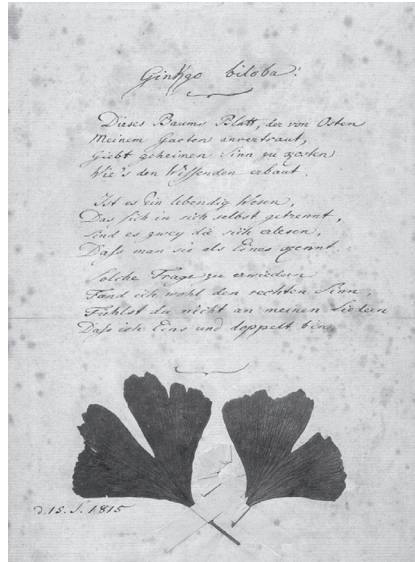 Ginkgo biloba.
Dieses Baums Blatt, der von Osten
Meinem Garten anvertraut,
Giebt geheimen Sinn zu kosten
Wie's den Wissenden erbaut.
Ist es Ein lebendig Wesen,
Das sich in sich selbst getrennt,
Sind es zwey die sich erlesen,
Daſs man sie als Eines kennt.
Solche Frage zu erwiedern
Fand ich wohl den rechten Sinn,
Fühlst du nicht an meinen Liedern
Daſs ich Eins und doppelt bin.
d. 15. S. 1815